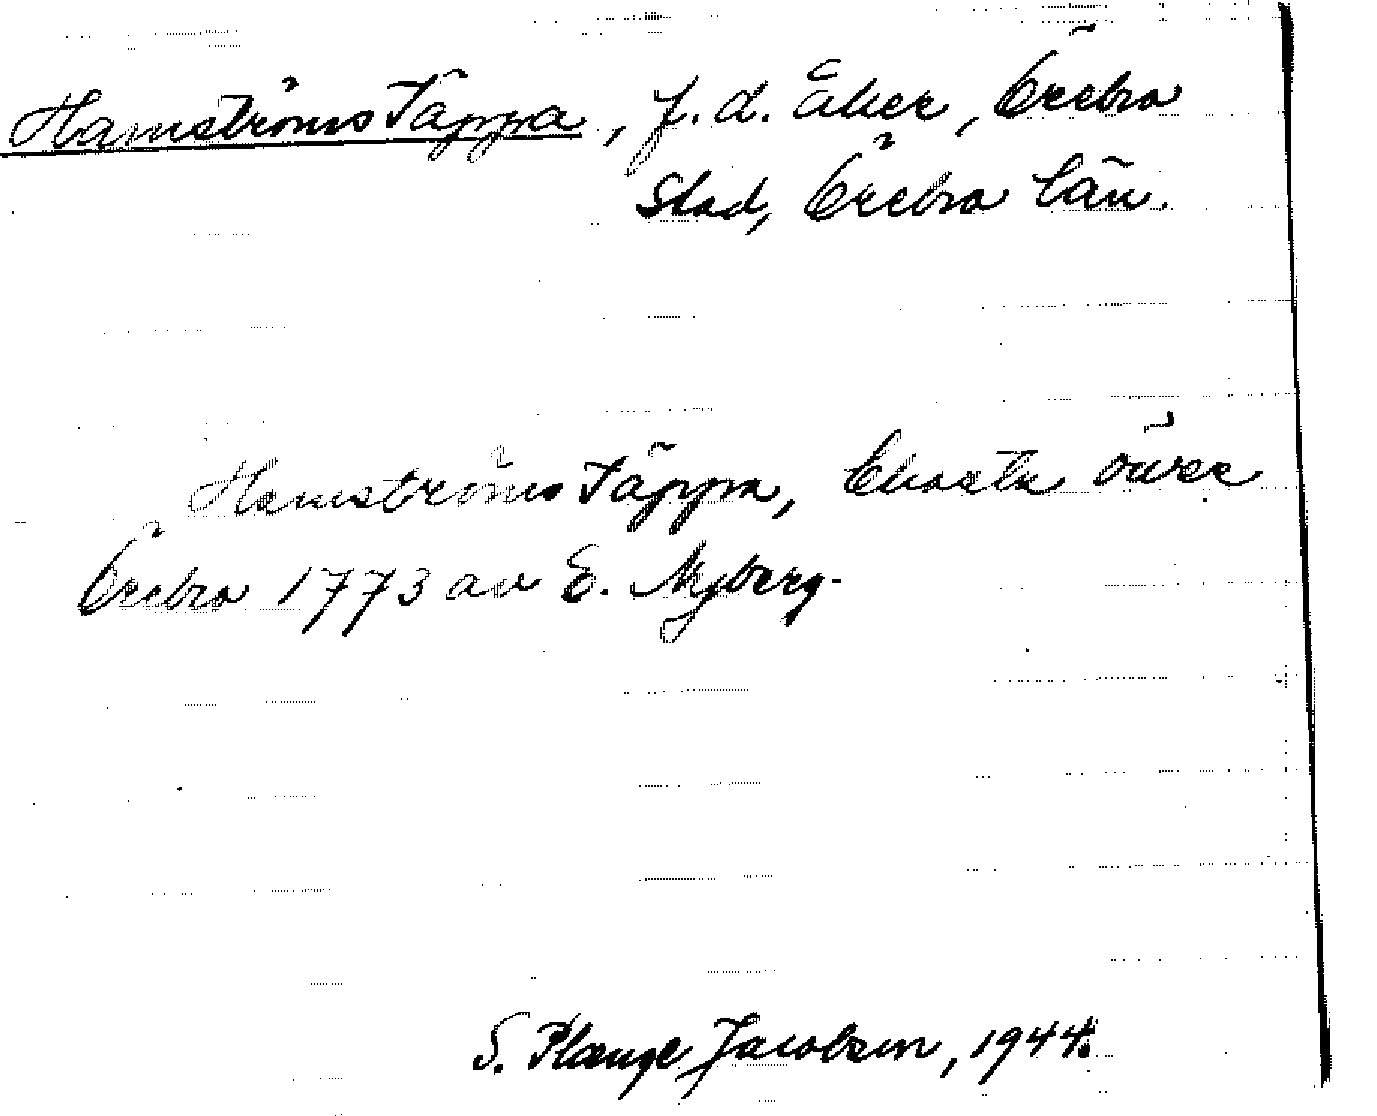 Hamströms Täppa, f.d. åker, Örebro
Stad, Örebro län.
Hamströms Täppa, Charta över
Örebro 1773 av E. Nyberg.
S. Plange Jacobson, 1944.